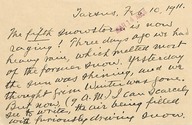 Tarsus, Feb 10, 1911.
The fifth snowstorm is now
raging! Three days ago we had
heavy rain, which melted most
of the former snow. Yesterday
the sun was shining, and we
thought Winter was gone.
But now (A.M.) I can scarcely
see to write, the air being filled
with furiously driving snow.